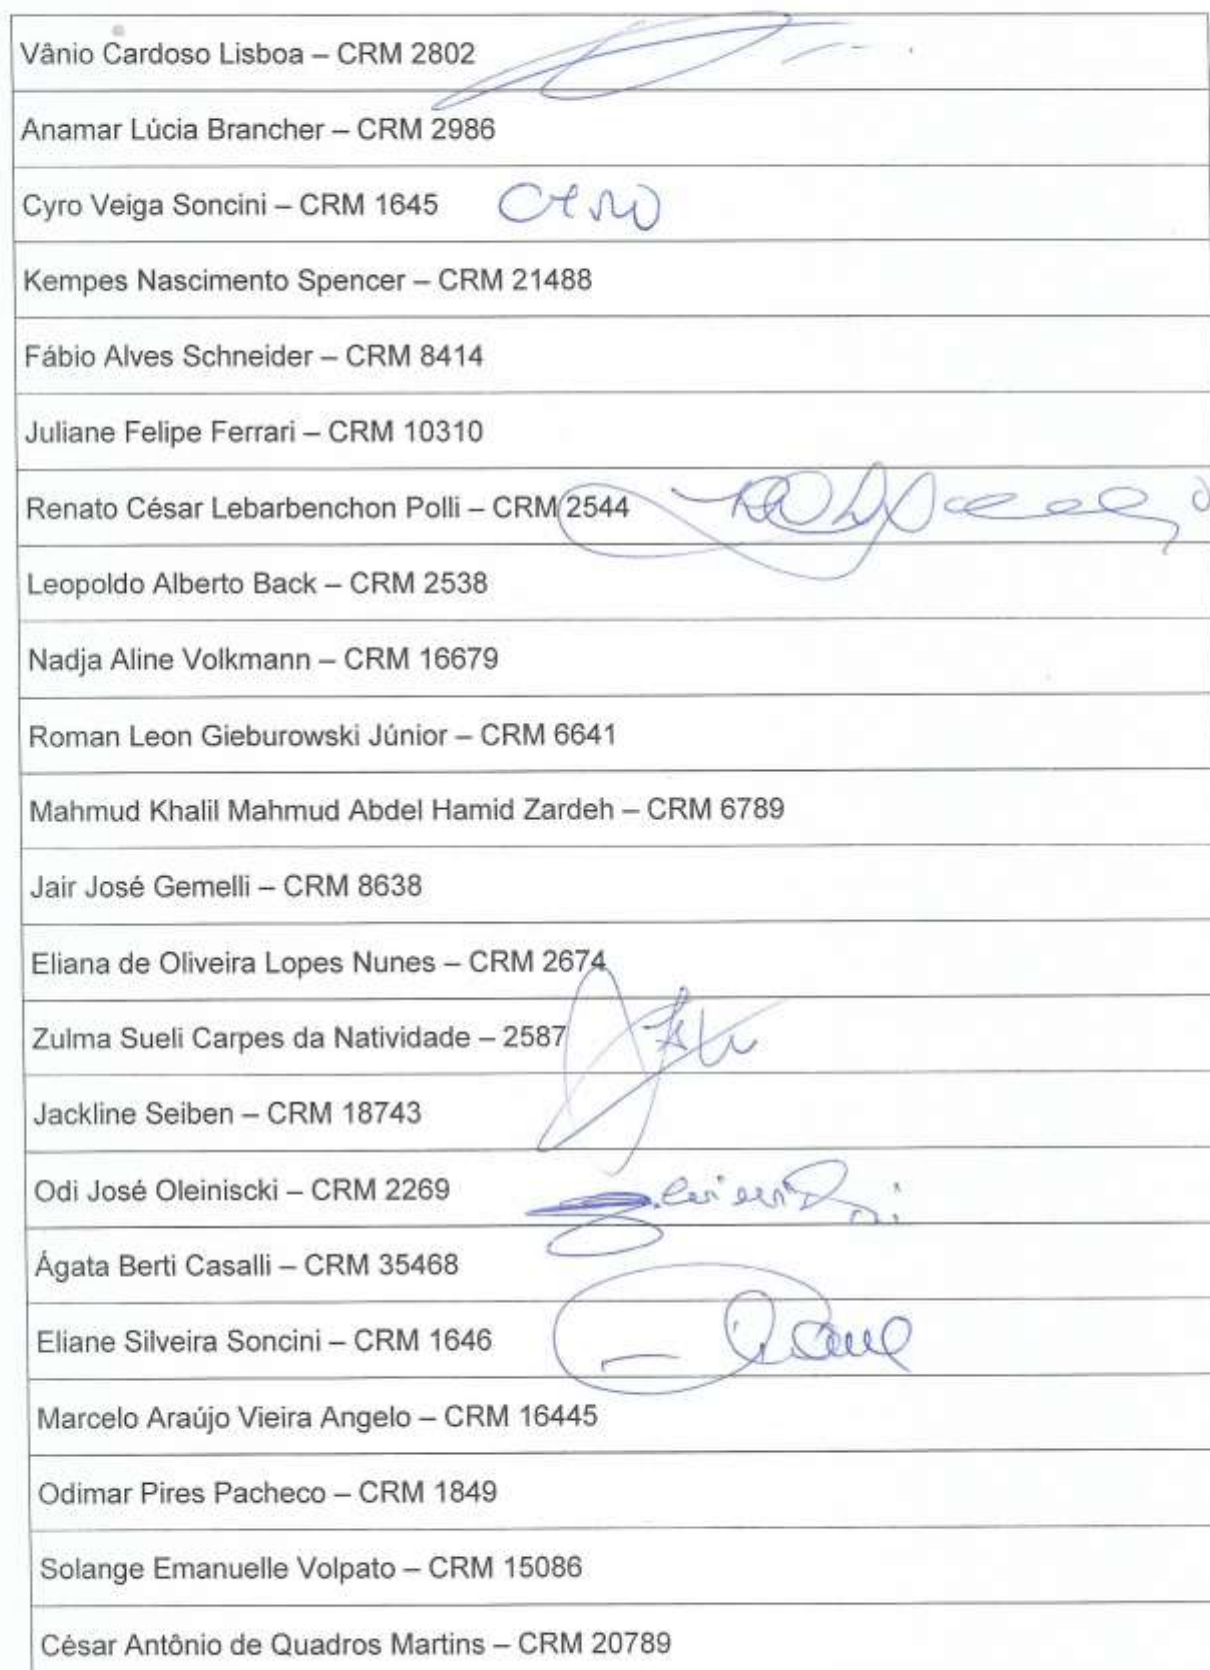 Vânio Cardoso Lisboa – CRM 2802
Anamar Lúcia Brancher – CRM 2986
Cyro Veiga Soncini – CRM 1645 Cyro
Kempes Nascimento Spencer – CRM 21488
Fábio Alves Schneider – CRM 8414
Juliane Felipe Ferrari – CRM 10310
Renato César Lebarbenchon Polli – CRM 2544
Leopoldo Alberto Back – CRM 2538
Nadja Aline Volkmann – CRM 16679
Roman Leon Gieburowski Júnior – CRM 6641
Mahmud Khalil Mahmud Abdel Hamid Zardeh – CRM 6789
Jair José Gemelli – CRM 8638
Eliana de Oliveira Lopes Nunes – CRM 2674
Zulma Sueli Carpes da Natividade – 2587
Jackline Seiben – CRM 18743
Odi José Oleiniscki – CRM 2269
Ágata Berti Casalli – CRM 35468
Eliane Silveira Soncini – CRM 1646
Marcelo Araújo Vieira Angelo – CRM 16445
Odimar Pires Pacheco – CRM 1849
Solange Emanuelle Volpato – CRM 15086
César Antônio de Quadros Martins – CRM 20789